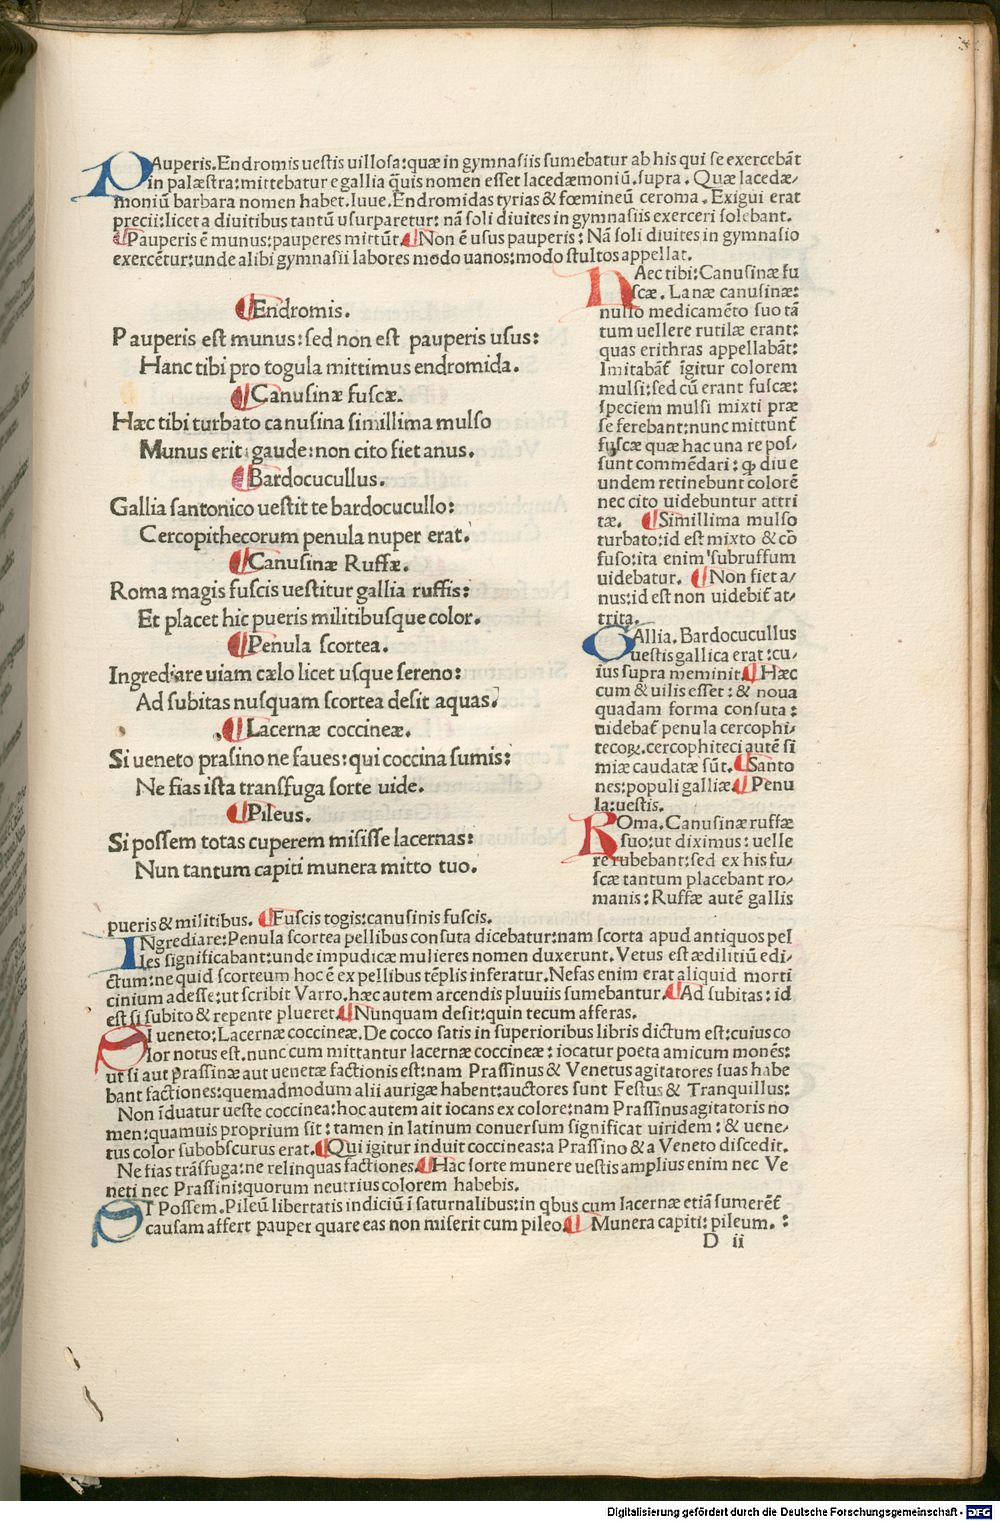 PAuperis.Endromis uestis uillosa:quæ in gymnasiis sumebatur ab his qui se exercebāt
in palæstra:mittebatur e gallia q̄uis nomen esset lacedæmoniū.supra. Quæ lacedæ/
moniū barbara nomen habet.Iuue.Endromidas tyrias & fœmineū ceroma. Exigui erat
precii:licet a diuitibus tantū usurparetur: nā soli diuites in gymnasiis exerceri solebant.
¶Pauperis ē munus:pauperes mittūt.¶Non ē usus pauperis: Nā soli diuites in gymnasio
exercētur:unde alibi gymnasii labores modo uanos:modo stultos appellat.
¶Endromis.
Pauperis est munus:sed non est pauperis usus:
Hanc tibi pro togula mittimus endromida.
¶Canusinæ fuscæ.
Hæc tibi turbato canusina simillima mulso
Munus erit:gaude:non cito fiet anus.
¶Bardocucullus.
Gallia santonico uestit te bardocucullo:
Cercopithecorum penula nuper erat.
¶Canusinæ Ruffæ.
Roma magis fuscis uestitur gallia ruffis:
Et placet hic pueris militibusque color.
¶Penula scortea.
Ingrediare uiam cælo licet usque sereno:
Ad subitas nusquam scortea desit aquas.
¶Lacernæ coccineæ.
Si ueneto prasino ne faues:qui coccina sumis:
Ne fias ista transfuga sorte uide.
¶Pileus.
Si possem totas cuperem misisse lacernas:
Nun tantum capiti munera mitto tuo.
HAec tibi:Canusinæ fu
scæ. Lanæ canusinæ:
nullo medicamēto suo tā
tum uellere rutilæ erant:
quas erithras appellabāt:
Imitabāt̄ igitur colorem
mulsi:sed cū erant fuscæ:
speciem mulsi mixti præ
se ferebant:nunc mittunt̄
fuscæ quæ hac una re pos/
sunt commēdari: ꝙ diu e
undem retinebunt colorē
nec cito uidebuntur attri
tæ. ¶Simillima mulso
turbato:id est mixto & cō
fuso:ita enim subruffum
uidebatur. ¶Non fiet a/
nus:id est non uidebit̄ at/
trita.
GAllia. Bardocucullus
uestis gallica erat:cu/
ius supra meminit.¶Hæc
cum & uilis esset: & noua
quadam forma consuta:
uidebat̄ penula cercophi/
tecoꝝ.cercophiteci autē si
miæ caudatæ sūt.¶Santo
nes:populi galliæ.¶Penu
la:uestis.
ROma. Canusinæ ruffæ
suo:ut diximus: uelle
re rubebant:sed ex his fu/
scæ tantum placebant ro/
manis: Ruffæ autē gallis
pueris & militibus. ¶Fuscis togis:canusinis fuscis.
INgrediare:Penula scortea pellibus consuta dicebatur:nam scorta apud antiquos pel
les significabant:unde impudicæ mulieres nomen duxerunt. Vetus est ædilitiū edi/
ctum:ne quid scorteum hoc ē ex pellibus tēplis inferatur. Nefas enim erat aliquid morti
cinium adesse:ut scribit Varro.hæc autem arcendis pluuiis sumebantur.¶Ad subitas: id
est si subito & repente plueret.¶Nunquam desit:quin tecum afferas.
SI ueneto:Lacernæ coccineæ. De cocco satis in superioribus libris dictum est:cuius co
lor notus est.nunc cum mittantur lacernæ coccineæ: iocatur poeta amicum monēs:
ut si aut prassinæ aut uenetæ factionis est:nam Prassinus & Venetus agitatores suas habe
bant factiones:quemadmodum alii aurigæ habent:auctores sunt Festus & Tranquillus:
Non īduatur ueste coccinea:hoc autem ait iocans ex colore:nam Prassinus agitatoris no
men:quamuis proprium sit:tamen in latinum conuersum significat uiridem: & uene/
tus color subobscurus erat.¶Qui igitur induit coccineas:a Prassino & a Veneto discedit.
Ne fias trāsfuga:ne relinquas factiones.¶Hac sorte munere uestis amplius enim nec Ve
neti nec Prassini:quorum neutrius colorem habebis.
SI Possem. Pileū libertatis indiciū ī saturnalibus:in qbus cum lacernæ etiā sumerēt̄
causam affert pauper quare eas non miserit cum pileo.¶ Munera capiti: pileum. :
D ii
Digitalisierung gefördert durch die Deutsche Forschungsgemeinschaft - DFG